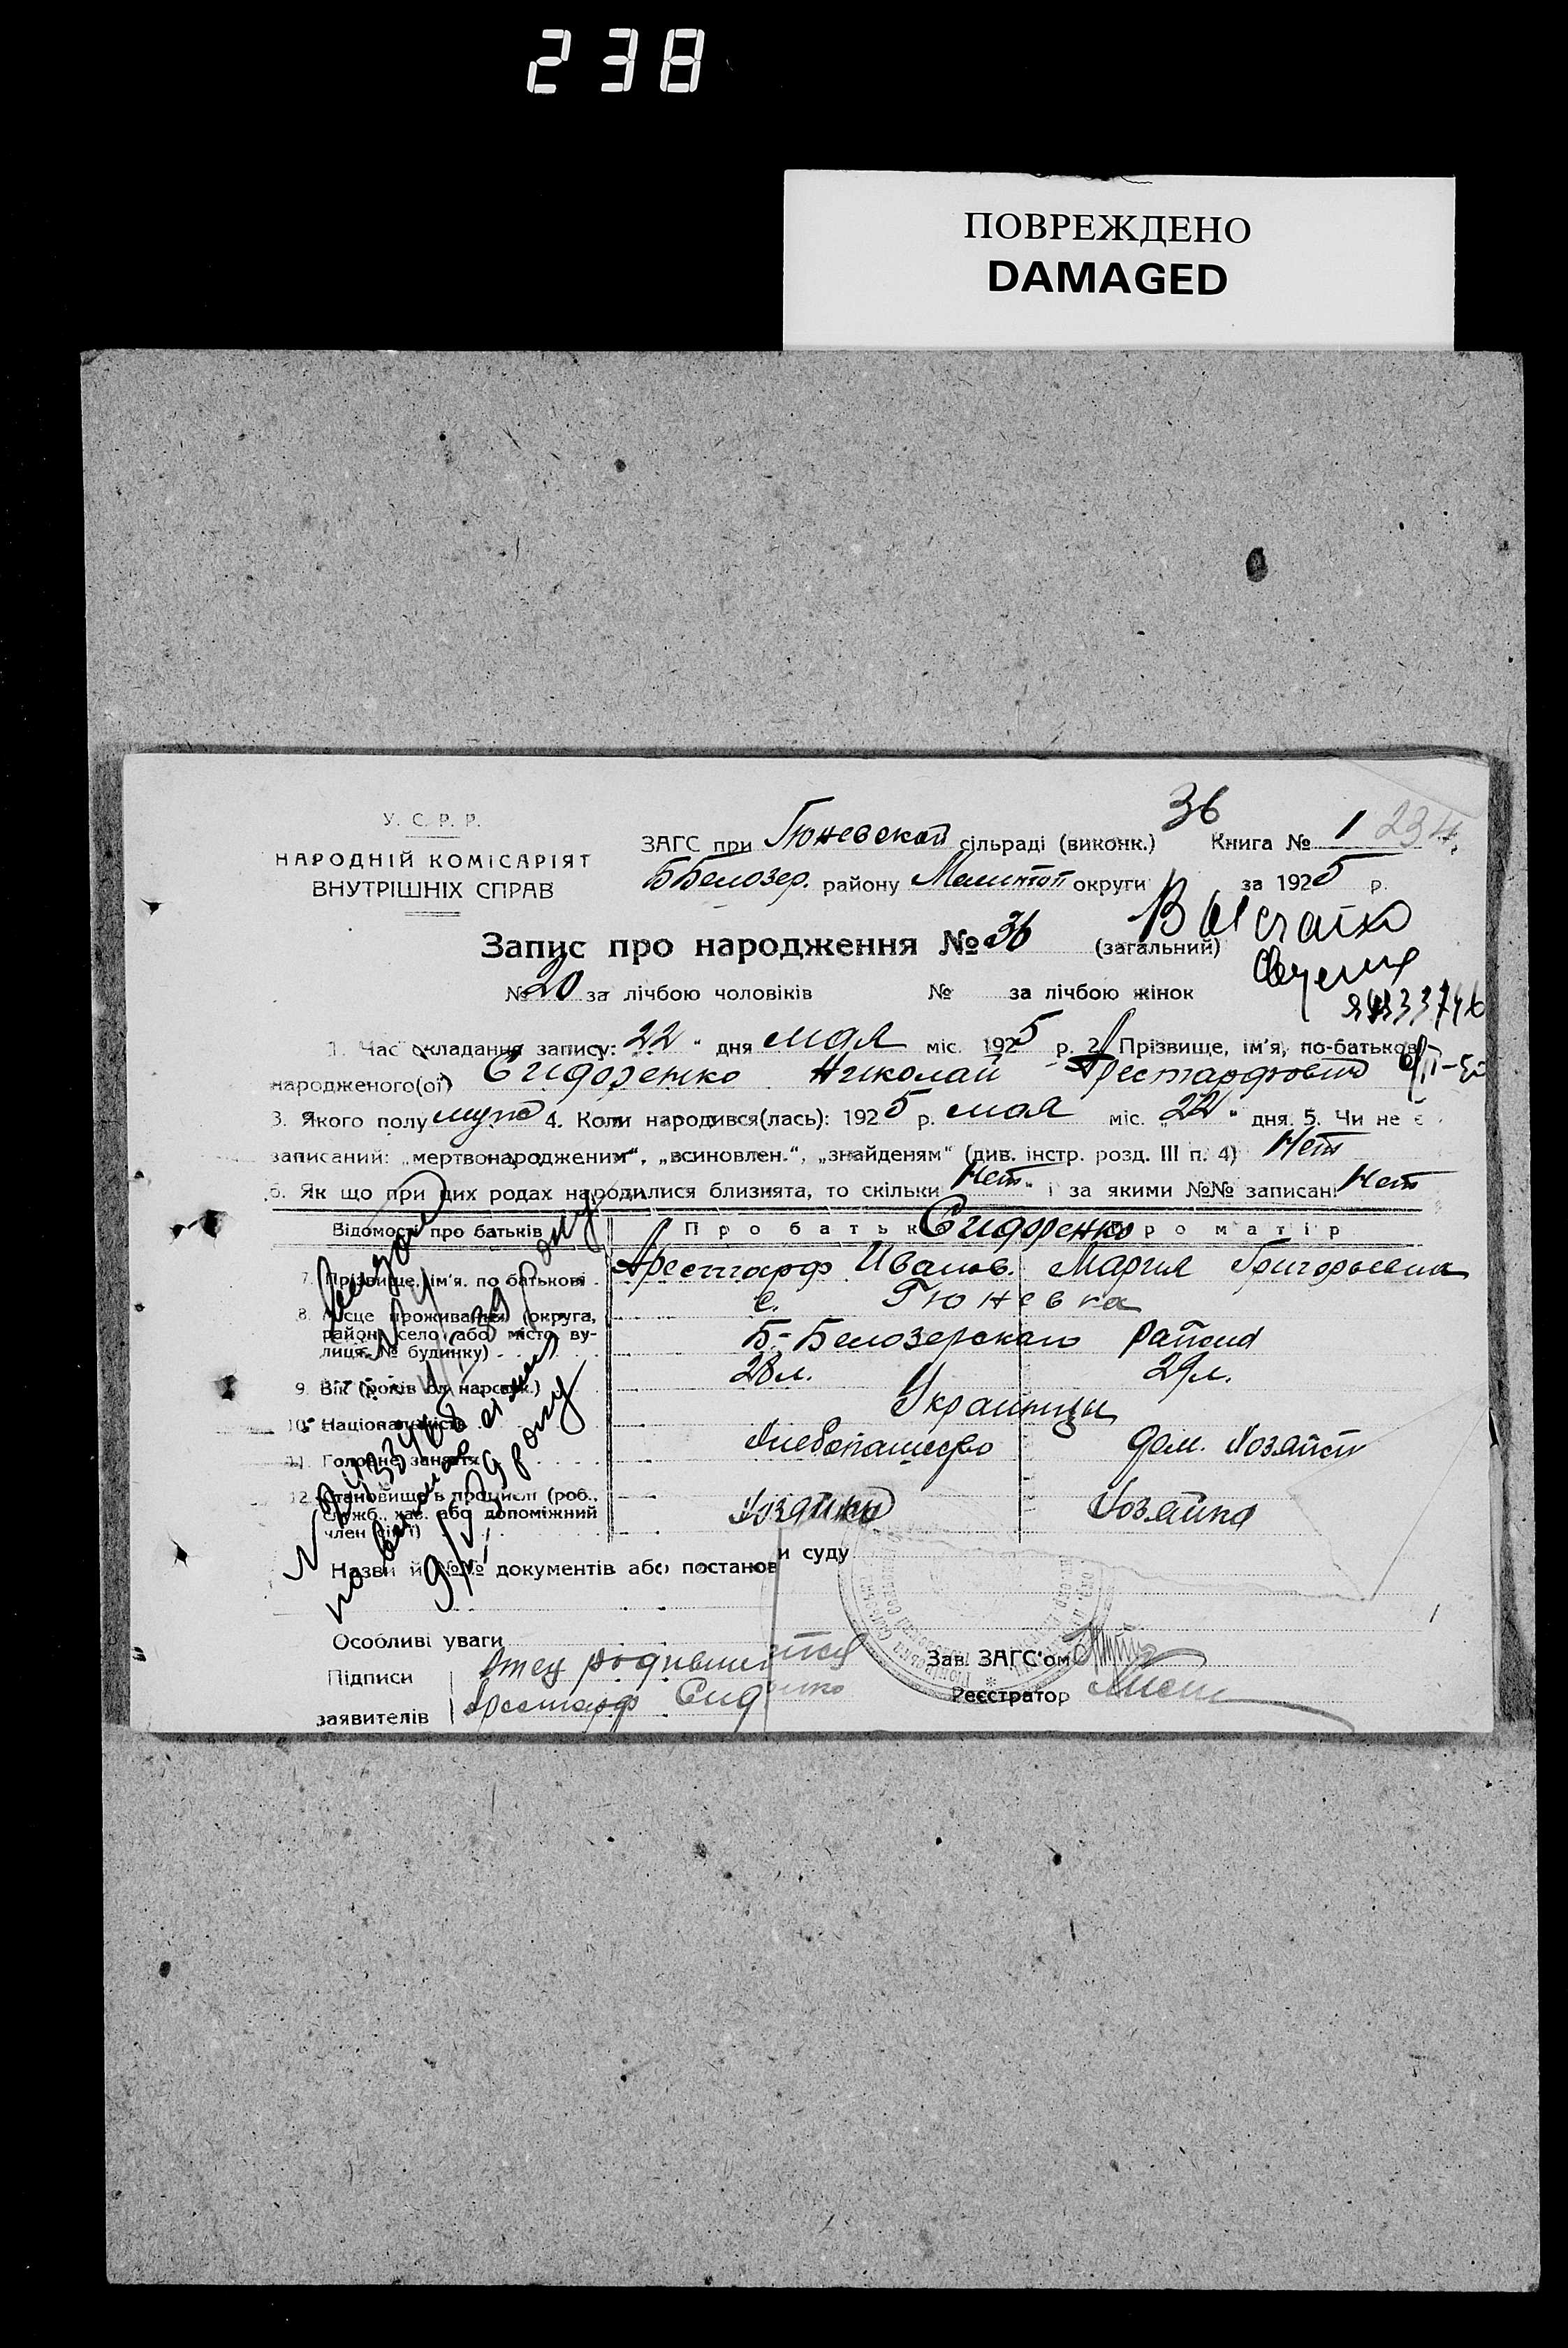 238
ПОВРЕЖДЕНО
DAMAGED
36
У. С. Р. Р.
НАРОДНІЙ КОМІСАРІЯТ
ВНУТРІШНІХ СПРАВ
ЗАГС при Гюневской сільраді (виконк.) Книга № 1 234
ББелозер. району Мелитоп округи за 1925 р.
Запис про народження № 36 (загальний)
№ 20 за лічбою чоловіків № за лічбою жінок
1. Час складання запису: 22 " дня мая міс. 1925 р. 2. Прізвище, ім'я, по-батькові
народженого(ої) Сидоренко Николай Арестарфович
3. Якого полу муж 4. Коли народився(лась): 1925 р. мая міс. „22" дня. 5. Чи не є
записаний: „мертвонародженим", „всиновлен.", „знайденям" (див. інстр. розд. III п. 4) Нет
6. Як що при цих родах народилися близнята, то скільки Нет і за якими №№ записані Нет
Відомості про батьків Про батька Сидоренко Про матір
7. Прізвище, ім'я, по батькові Арестарф Иванов. Мария Григорьевна
8. Місце проживання (округа, с. Гюневка
район, село або місто, ву-
лиця, № будинку) Б-Белозерского района
9. Вік (років од народж.) 28 л. 29 л.
10. Національність Украинцы
11. Головне заняття Хлебопашество дом. хозяйст
12. Становище в промислі (роб., служб., хаз. або допоміжний член сім'ї) Хозяин Хозяйка
Назви й №№ документів або постанови суду
Особливі уваги
Підписи Отец родившегося
заявителів Арестарф Сид
Зав. ЗАГС'ом
Реєстратор